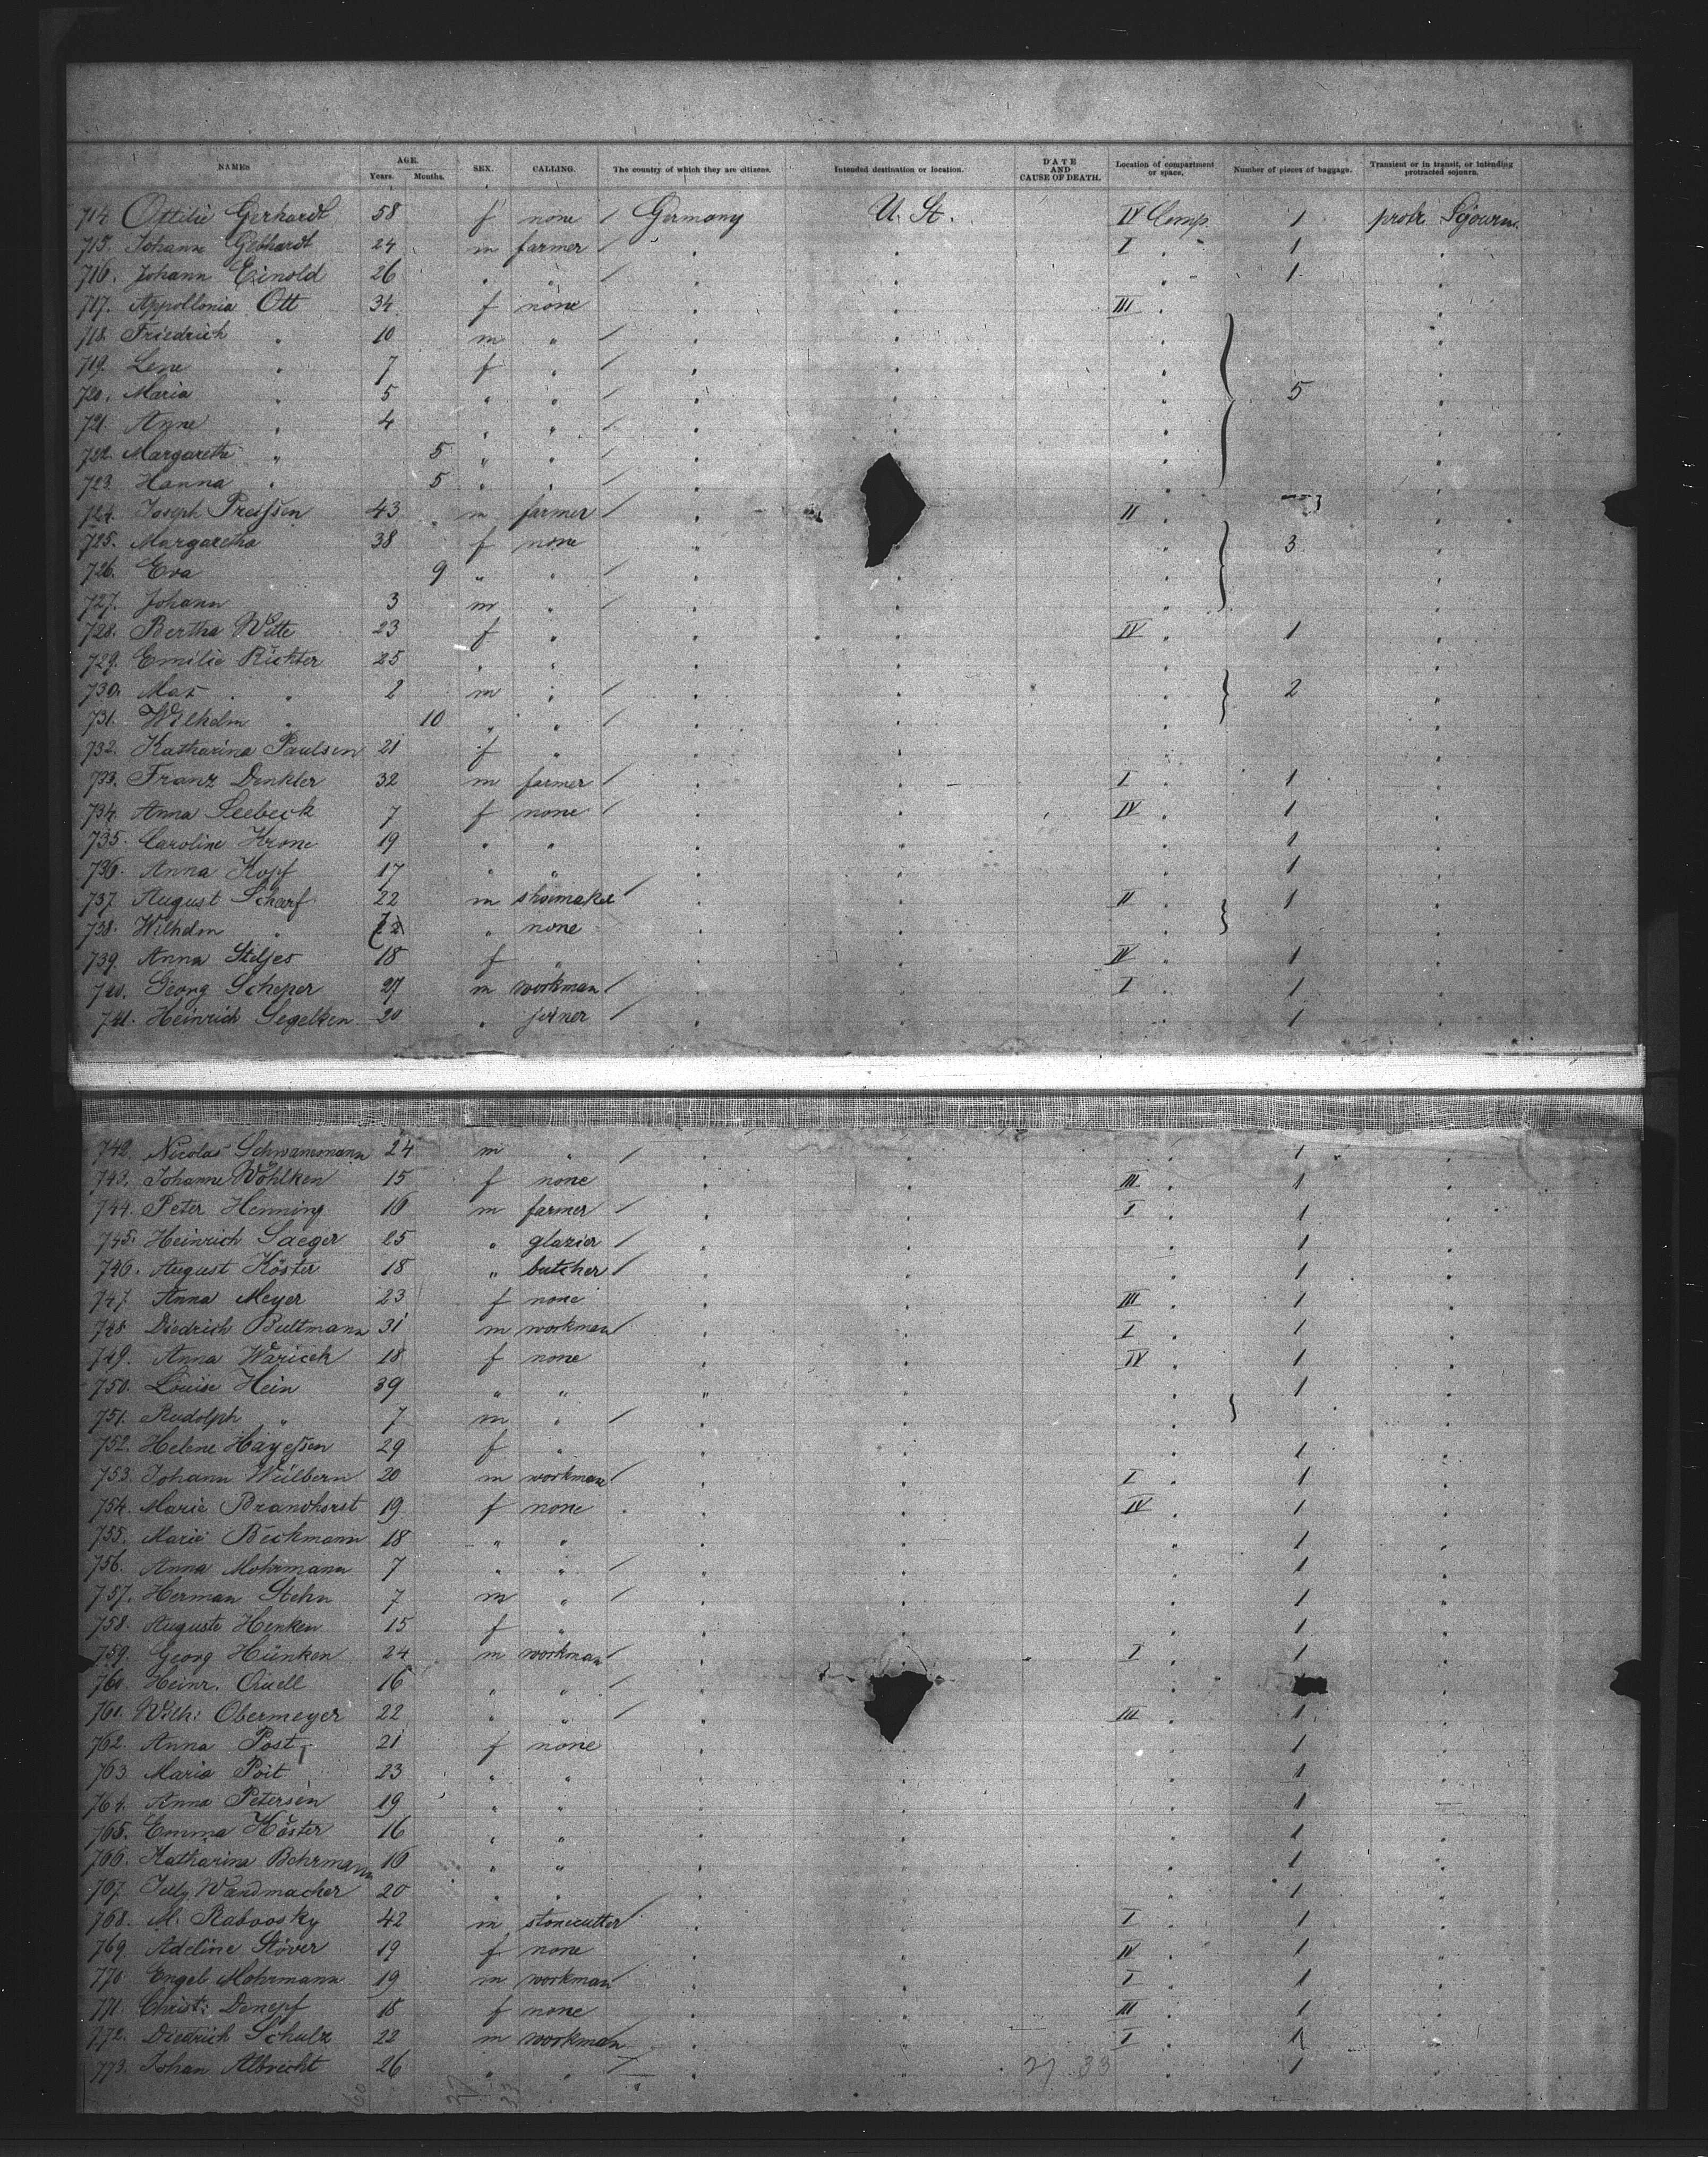 NAMES AGE. Years. Months. SEX. CALLING. The country of which they are citizens. Intended destination or location. DATE AND CAUSE OF DEATH. Location of compartment or space. Number of pieces of baggage. Transient or in transit, or intending protracted sojourn.
714. Ottilie Gerhardt 58 f none / Germany U. St. IV Comp. 1 protr. Sojourn.
715. Johann Gebhardt 24 m farmer / " " I " 1 "
716. Johann Einold 26 " " / " " " 1 "
717. Appollonia Ott 34 f none " " III " "
718. Friedrich " 10 m " / " " " "
719. Lene " 7 f " / " " " "
720. Maria " 5 " " / " " " 5 "
721. Anne " 4 " " / " " " "
722. Margarethe " 5 " " / " " "
723. Hanna " 5 " " / " " "
724. Joseph Preissen 43 m farmer / II "
725. Margaretha 38 f none " " 3 "
726. Eva 9 " " / " " " "
727. Johann 3 m " / " " " "
728. Bertha Witte 23 f " " " IV " 1 "
729. Emilie Richter 25 " " " " " "
730. Max " 2 m " / " " " 2 "
731. Wilhelm " 10 " " / " " " "
732. Katharina Paulsen 21 f " " " " "
733. Franz Denkler 32 m farmer / " " I " 1 "
734. Anna Seebeck 7 f none / " " IV " 1 "
735. Caroline Krone 19 " " " " " 1 "
736. Anna Kopf 17 " " " " " 1 "
737. August Scharf 22 m shoemaker / " " II " 1 "
738. Wilhelm " " none " " " "
739. Anna Steljes 18 f " " " IV " 1 "
740. Georg Scheper 27 m workman / " " I " 1 "
741. Heinrich Segelken 20 " joiner / " " " 1 "
742. Nicolas Schwammann 24 m " / " " " 1 "
743. Johanne Wöhlken 15 f none " " III " 1 "
744. Peter Henning 16 m farmer / " " I " 1 "
745. Heinrich Saeger 25 " glazier / " " " 1 "
746. August Köster 18 " butcher / " " " 1 "
747. Anna Meyer 23 f none " " III " 1 "
748. Diedrich Bultmann 31 m workman / " " I " 1 "
749. Anna Waricek 18 f none " " IV " 1 "
750. Louise Hein 39 " " " " " 1 "
751. Rudolph " 7 m " / " " " "
752. Helene Hayessen 29 f " " " " 1 "
753. Johann Wülbern 20 m workman / " " I " 1 "
754. Marie Brandhorst 19 f none " " IV " 1 "
755. Marie Beckmann 18 " " " " " 1 "
756. Anna Mohrmann 7 " " / " " " 1 "
757. Herman Stehn 7 m " / " " " 1 "
758. Auguste Henken 15 f " " " " 1 "
759. Georg Hünken 24 m workman / " " I " 1 "
760. Heinr. Quell 16 " " / " " "
761. Wilh: Obermeyer 22 " " / " III " 1 "
762. Anna Post 21 f none " " " 1 "
763. Maria Poit 23 " " " " " 1 "
764. Anna Petersen 19 " " " " " 1 "
765. Emma Köster 16 " " " " " 1 "
766. Katharina Behrmann 16 " " " " " 1 "
767. Wandmacher 20 " " " " " 1 "
768. M. Rabovsky 42 m stonecutter / " " I " 1 "
769. Adeline Stöver 19 f none " " IV " 1 "
770. Engelb Mohrmann 19 m workman / " " I " 1 "
771. Christ: 18 f none " " III " 1 "
772. Diedrich Schulz 22 m workman / " " I " 1 "
773. Johan Albrecht 26 " " / " " " 1 "
27 33
60 27 33